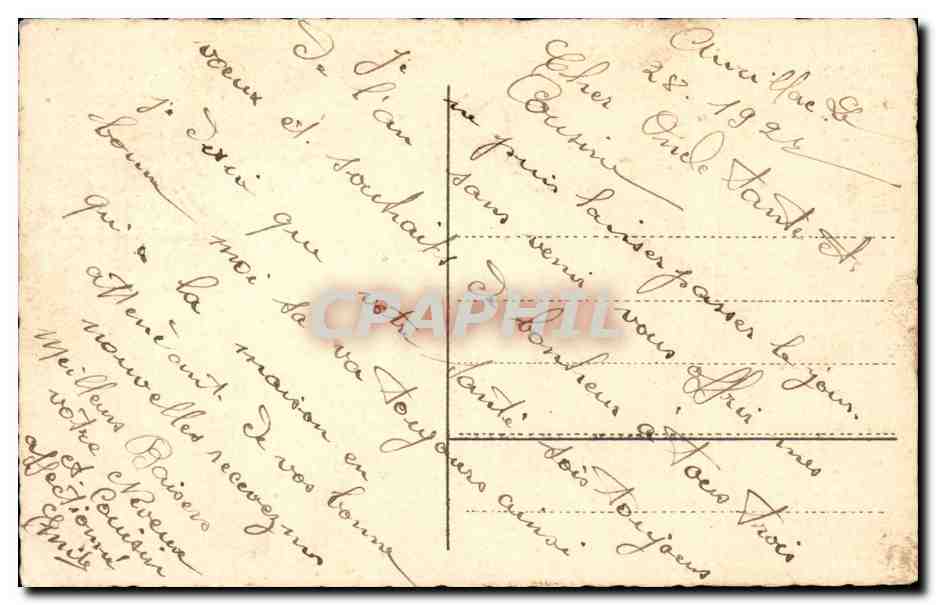 Aurillac Le
28. 192
Cher Oncle Tante et
Cousin
ne puis laisser passer le jour
De l'an sans venir vous offrir mes
voeux et souhaits De bonheur à tous trois
Je Desir que votre santé sois toujours
bonne moi sa va toujours ainsi
qu'a la maison en bonne
attenéant De vos
nouvelles recevez mes
Meilleurs Baisers
votre Neveux
et Cousin
affectionné
Emile
CPAPHIL